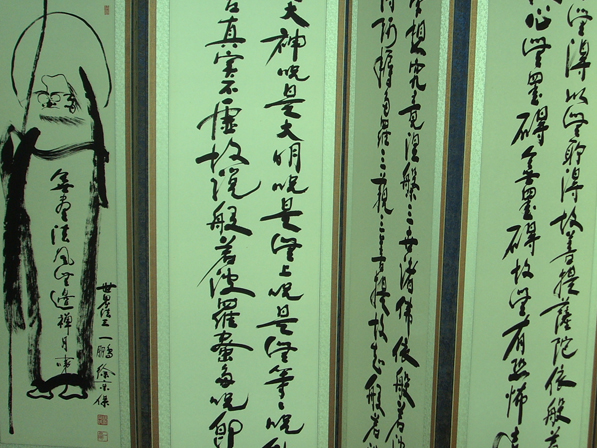 無得以無所得故菩提薩陀依般若
心無罣礙無罣礙故無有恐怖
想究竟涅槃三世諸佛依般若
得阿耨多羅三藐三菩提故知般若
大神呪是大明呪是無上呪是無等等呪
真實不虛故說般若波羅蜜多呪即
無盡清風無邊禪月
一鵬 徐京保